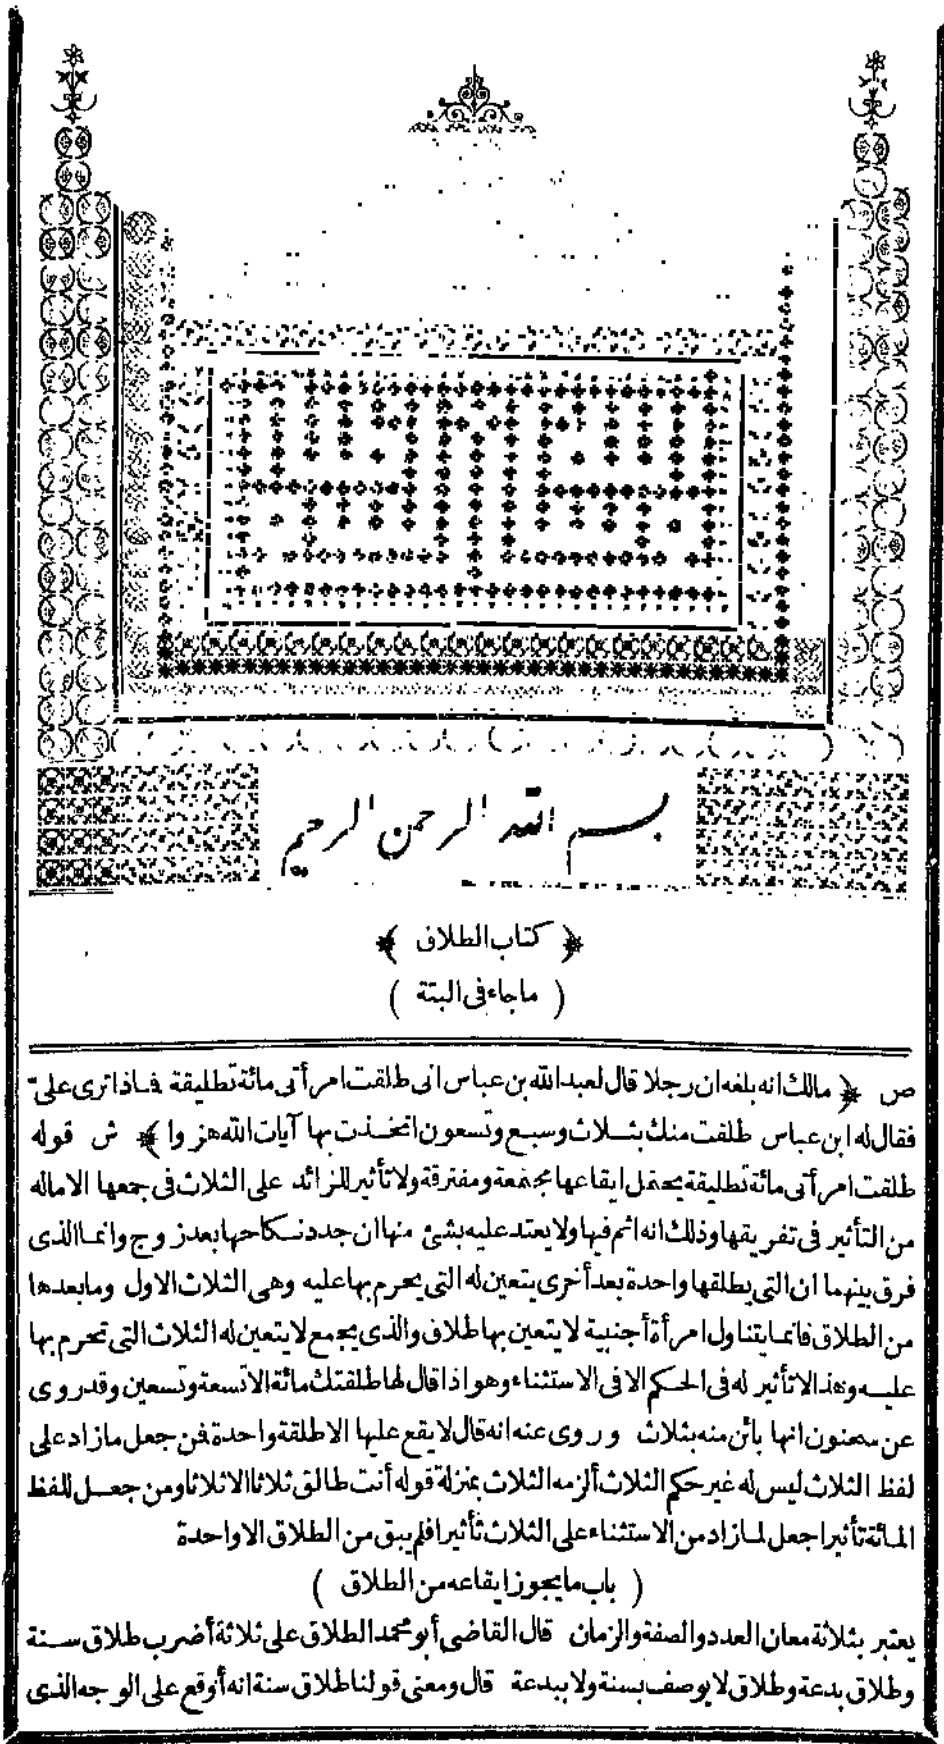 بسم الله الرحمن الرحيم
﴿ كتاب الطلاق ﴾
( ماجاء فى البتة )
ص ﴿ مالك انه بلغه ان رجلا قال لعبد الله بن عباس انى طلقت امرأتى مائة تطليقة فماذا ترى علىّ
فقال له ابن عباس طلقت منك بثلاث وسبع وتسعون اتخذت بها آيات الله هزوا ﴾ ش قوله
طلقت امرأتى مائة تطليقة يحتمل ايقاعها مجتمعة ومفترقة ولا تأثير للزائد على الثلاث فى جمعها الا ماله
من التأثير فى تفريقها وذلك انه اثم فيها ولا يعتد عليه بشئ منها ان جدد نكاحها بعد زوج وانما الذى
فرق بينهما ان التى يطلقها واحدة بعد أخرى يتعين له التى يحرم بها عليه وهى الثلاث الاول وما بعدها
من الطلاق فانما يتناول امرأة أجنبية لا يتعين بها طلاق والذى يجمع لا يتعين له الثلاث التى تحرم بها
عليه وهذا لا تأثير له فى الحكم الا فى الاستثناء وهو اذا قال لها طلقتك مائة الا تسعة وتسعين وقد روى
عن سحنون انها بائن منه بثلاث وروى عنه انه قال لا يقع عليها الا طلقة واحدة فمن جعل مازاد على
لفظ الثلاث ليس له غير حكم الثلاث ألزمه الثلاث بمنزلة قوله أنت طالق ثلاثا الا ثلاثا ومن جعل للفظ
المائة تأثيرا جعل لما زاد من الاستثناء على الثلاث تأثيرا فلم يبق من الطلاق الا واحدة
( باب ما يجوز ايقاعه من الطلاق )
يعتبر بثلاثة معان العدد والصفة والزمان قال القاضى أبو محمد الطلاق على ثلاثة أضرب طلاق سنة
وطلاق بدعة وطلاق لا يوصف بسنة ولا ببدعة قال ومعنى قولنا طلاق سنة انه أوقع على الوجه الذى